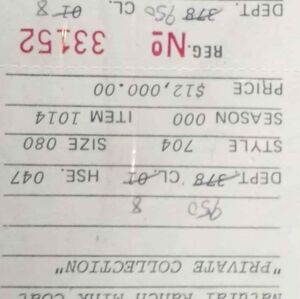 Natural Ranch Mink Coat
"PRIVATE COLLECTION"
950 8
DEPT. 378 CL. 01 HSE. 047
STYLE 704 SIZE 080
SEASON 000 ITEM 1014
PRICE $12,000.00
REG. Nº 33152
DEPT. 378 950 CL. 01 8